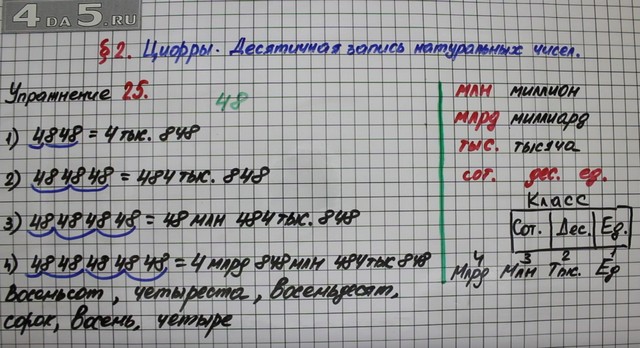 4 ДА 5.RU
§2. Цифры. Десятичная запись натуральных чисел.
Упражнение 25.
48
1) 4848 = 4 тыс. 848
2) 484848 = 484 тыс. 848
3) 48484848 = 48 млн 484 тыс. 848
4) 4848484848 = 4 млрд 848 млн 484 тыс 848
Восемьсот, четыреста, восемьдесят,
сорок, восемь, четыре
млн миллион
млрд миллиард
тыс. тысяча
сот. дес. ед.
Класс
Сот. Дес. Ед.
4 3 2 1
Млрд Млн Тыс. Ед